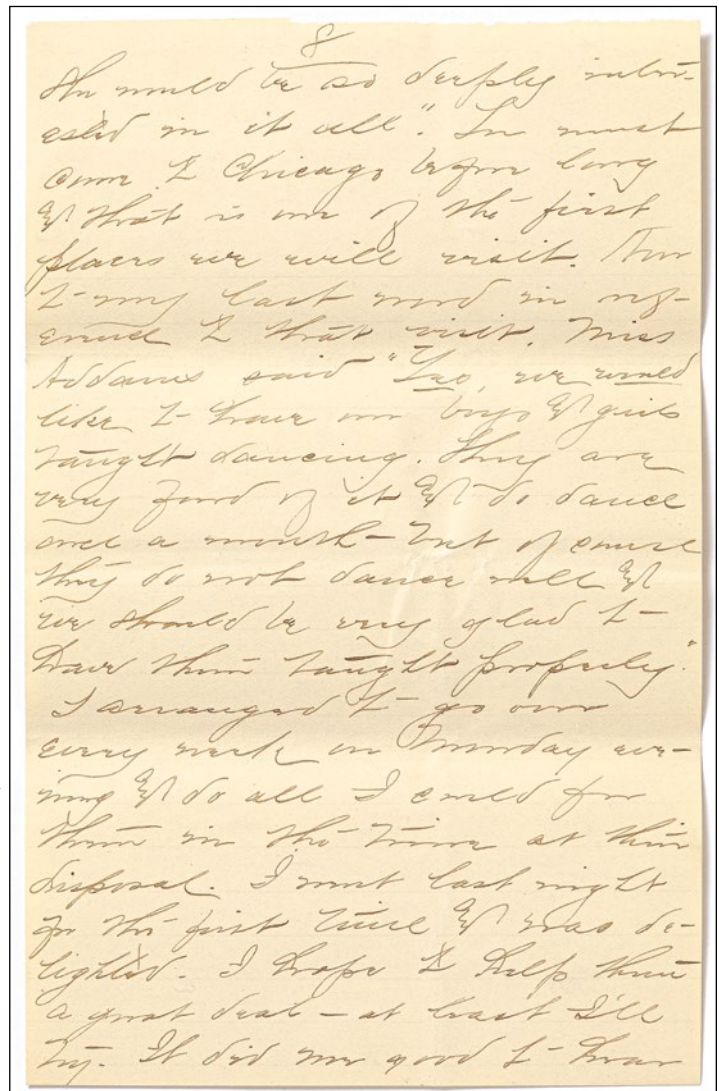 8
She would be so deeply inter-
ested in it all". You must
come to Chicago before long
& that is one of the first
places we will visit. Now
to my last word in ref-
erence to that visit. Miss
Addams said "Yes, we would
like to have our boys & girls
taught dancing. They are
very fond of it & do dance
once a month - but of course
they do not dance well &
we should be very glad to
have them taught properly."
I arranged to go over
every week on Monday eve-
ning & do all I could for
them in the time at their
disposal. I went last night
for the first time & was de-
lighted. I hope to help them
a great deal - at least I'll
try. It did me good to hear